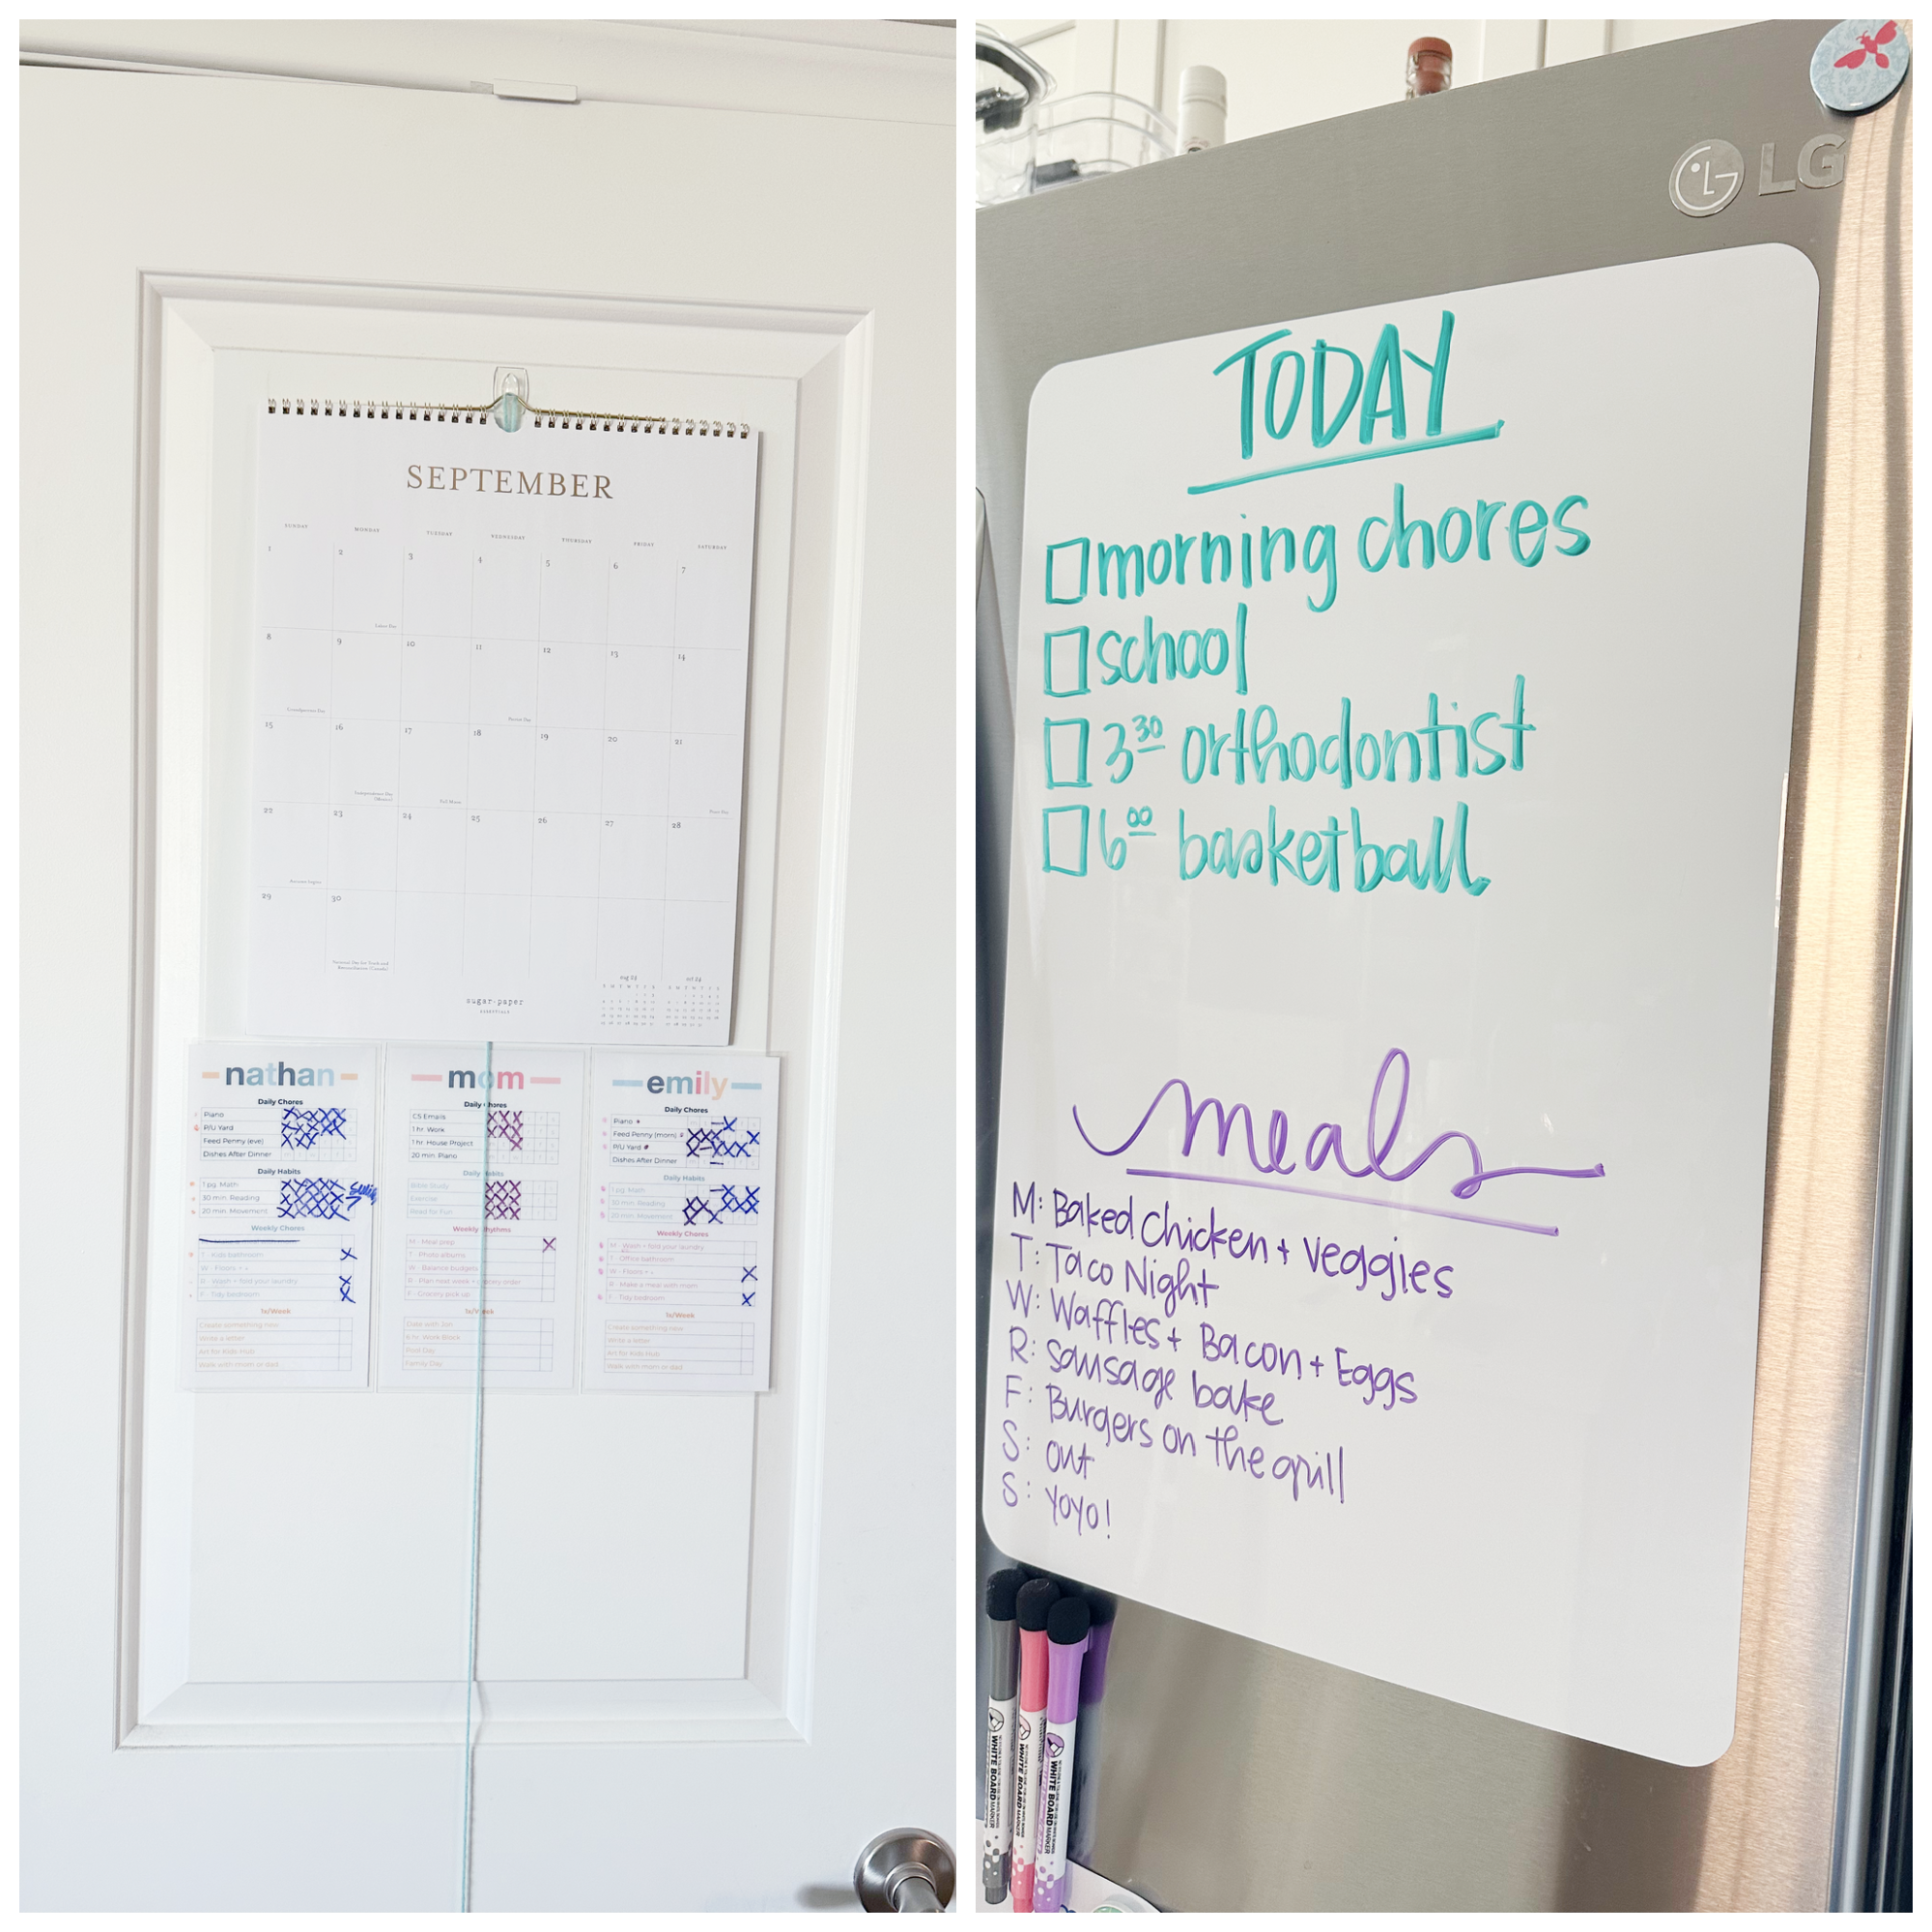 SEPTEMBER
SUNDAY MONDAY TUESDAY WEDNESDAY THURSDAY FRIDAY SATURDAY
1 2 3 4 5 6 7
Labor Day
8 9 10 11 12 13 14
Grandparents Day
Patriot Day
15 16 17 18 19 20 21
Independence Day
(Mexico)
Full Moon
22 23 24 25 26 27 28
Autumn begins
29 30
National Day for Truth and
Reconciliation (Canada)
aug 24 oct 24
sugar paper
nathan
Daily Chores
Piano
P/U Yard
Feed Penny (eve)
Dishes After Dinner
Daily Habits
1 pg. Math
30 min. Reading
20 min. Movement
Weekly Chores
T - Kids bathroom
W - Floors
R - Wash + fold your laundry
F - Tidy bedroom
1x/Week
Create something new
Write a letter
Art for Kids Hub
Walk with mom or dad
mom
Daily Chores
CS Emails
1 hr. Work
1 hr. House Project
20 min. Piano
Daily Habits
Bible Study
Exercise
Read for Fun
Weekly Rhythms
M - Meal prep
T - Photo albums
W - Balance budgets
R - Plan next week + grocery order
F - Grocery pick up
1x/Week
Date with Jon
6 hr. Work Block
Pool Day
Family Day
emily
Daily Chores
Piano
Feed Penny (morn)
P/U Yard
Dishes After Dinner
Daily Habits
1 pg. Math
30 min. Reading
20 min. Movement
Weekly Chores
M - Wash + fold your laundry
T - Office bathroom
W - Floors
R - Make a meal with mom
F - Tidy bedroom
1x/Week
Create something new
Write a letter
Art for Kids Hub
Walk with mom or dad
LG
TODAY
morning chores
school
3 30 orthodontist
6 00 basketball
meals
M: Baked Chicken + Veggies
T: Taco Night
W: Waffles + Bacon + Eggs
R: Sausage bake
F: Burgers on the grill
S: out
S: YOYO!
WHITE BOARD MARKER
WHITE BOARD MARKER
WHITE BOARD MARKER